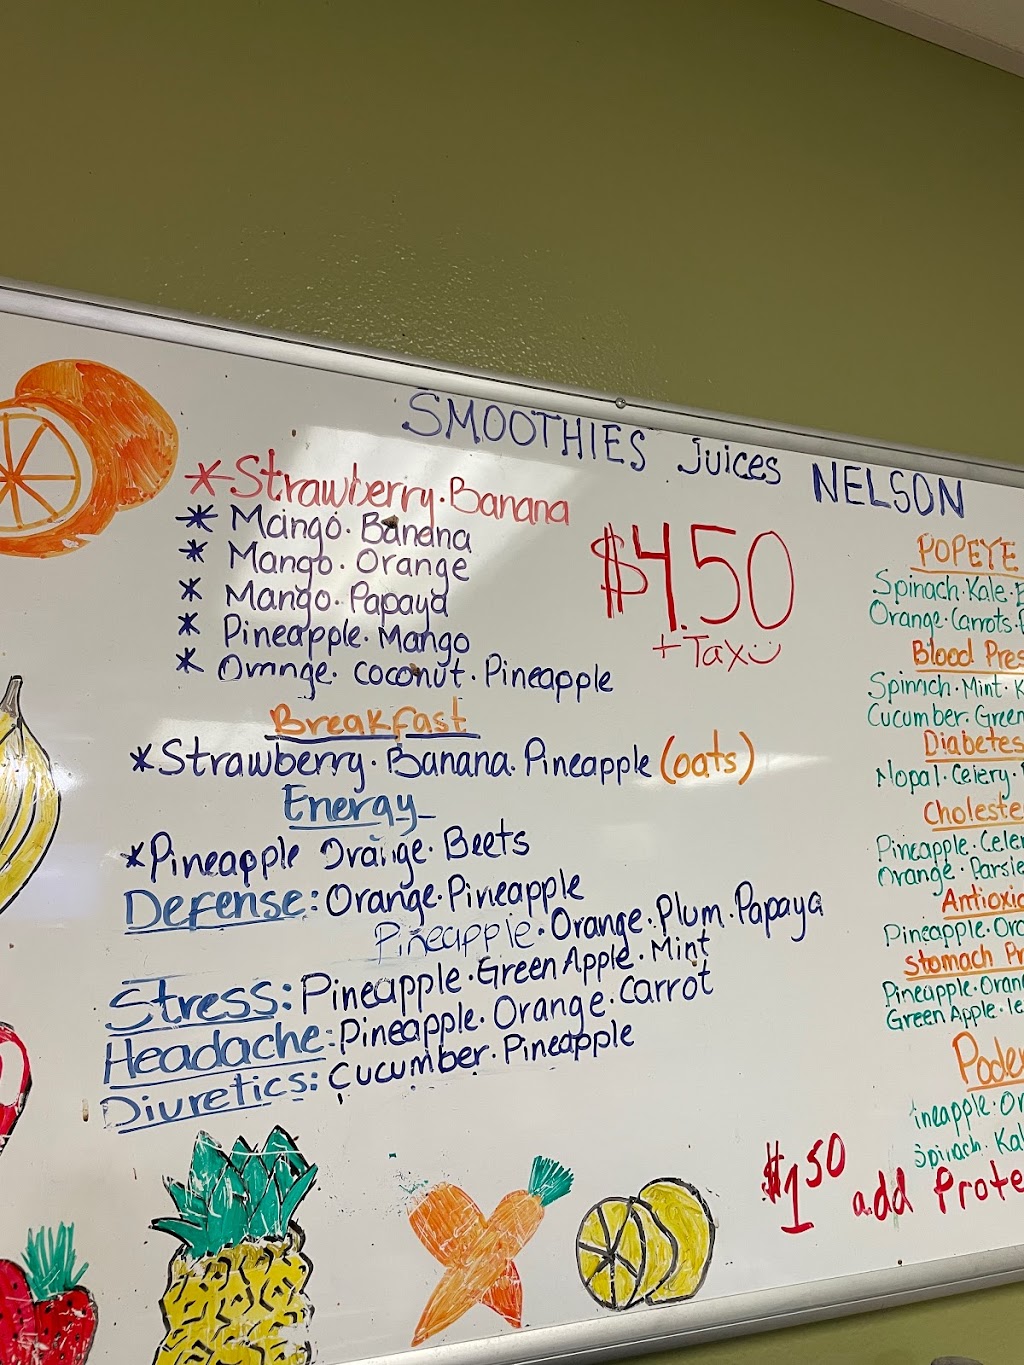 SMOOTHIES Juices NELSON
*Strawberry.Banana
* Mango.Banana
* Mango.Orange
* Mango.Papaya
* Pineapple.Mango
* Orange.Coconut.Pineapple
$4.50
+Tax
Breakfast
*Strawberry.Banana.Pineapple (oats)
Energy
*Pineapple Orange.Beets
Defense: Orange.Pineapple
Pineapple.Orange.Plum.Papaya
Stress: Pineapple.Green Apple.Mint
Headache: Pineapple.Orange.Carrot
Diuretics: Cucumber.Pineapple
POPEYE
Spinach.Kale.
Orange.Carrots.
Blood
Spinach.Mint.
Cucumber.Green
Diabetes
Nopal.Celery.
Pineapple.
Orange.
Pineapple.
Stomach
Pineapple.
Green Apple.
Spinach.
$1.50 add